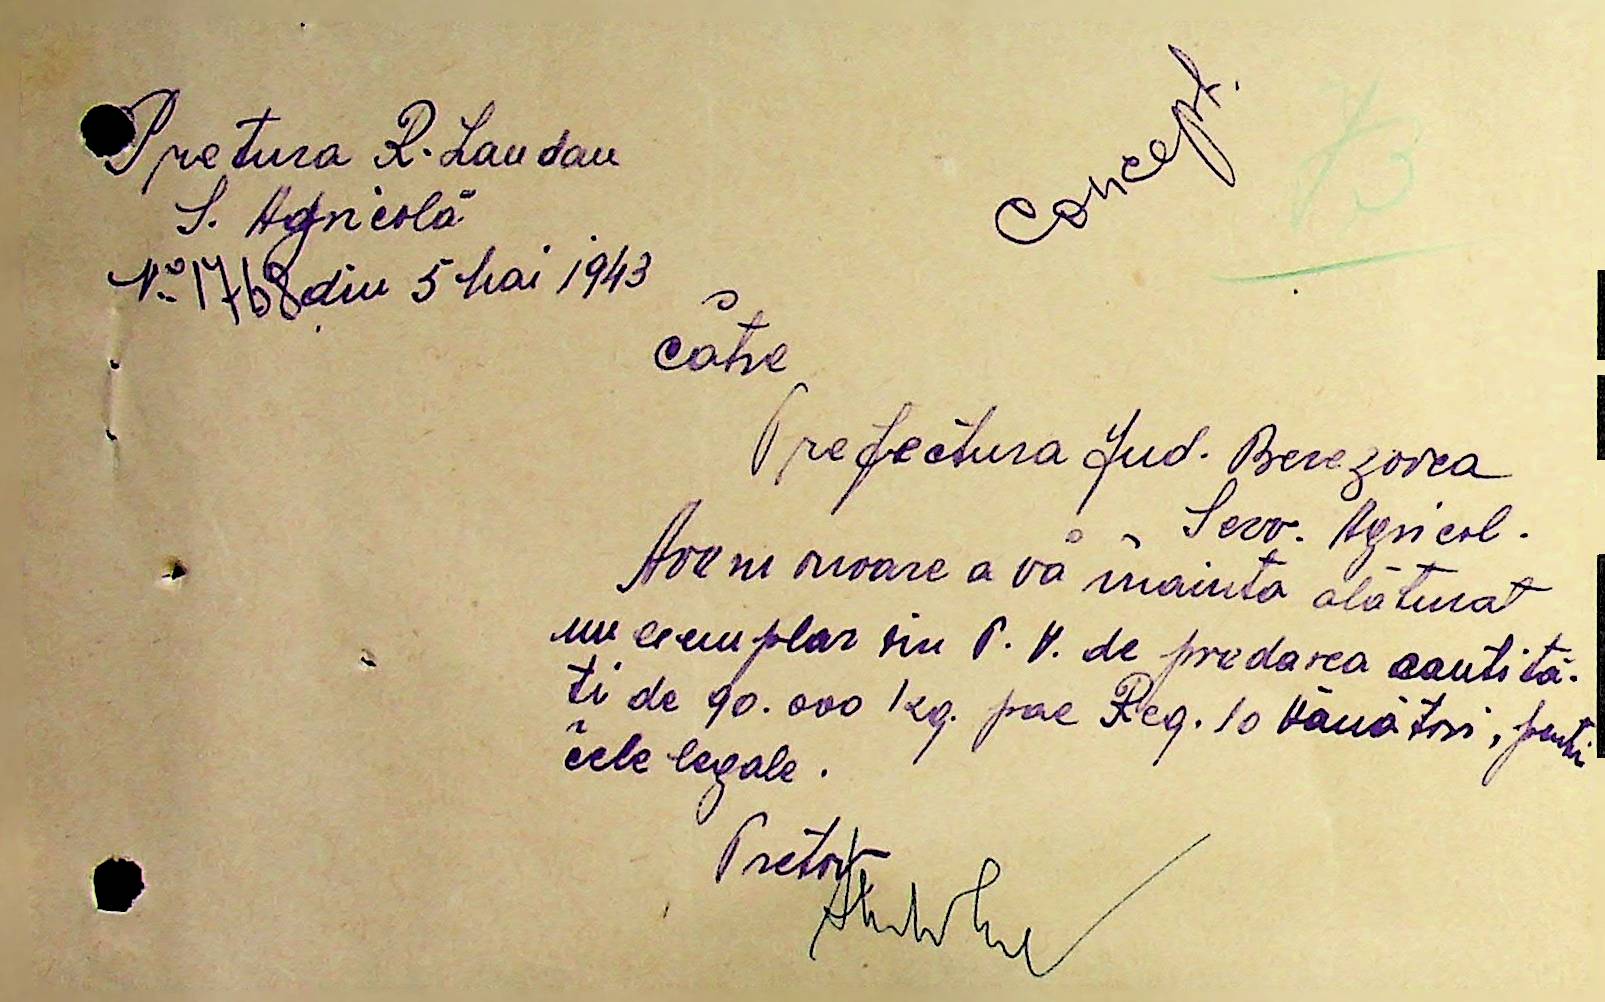 Concept.
73
Pretura R. Landau
S. Agricolă
No. 1768 din 5 Mai 1943
Către
Prefectura Jud. Berezovca
Serv. Agricol.
Avem onoare a vă înainta alăturat
un exemplar din P. V. de predarea cantită-
ti de 90.000 kg. pae Reg. 10 Vânători, pentru
cele legale.
Pretor